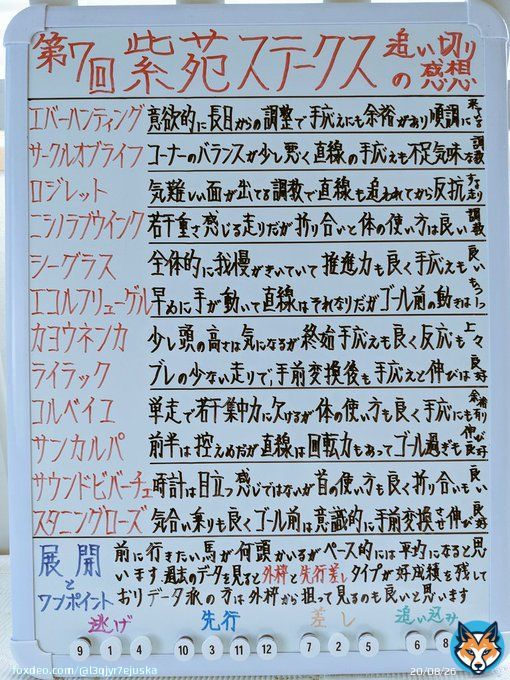 第7回 紫苑ステークス 追い切りの感想
エバーハンティング 意欲的に長目からの調整で手応えにも余裕があり順調に来てる
サークルオブライフ コーナーのバランスが少し悪く直線の手応えも不足気味な調教
ロジレット 気難しい面が出てる調教で直線も追われてから反抗する走り
ニシノラブウインク 若干重さ感じる走りだが折り合いと体の使い方は良い調教
シーグラス 全体的に我慢がきいていて推進力も良く手応えも良い
エコルフリューゲル 早めに手が動いて直線はそれなりだがゴール前の動きはもう一つ
カヨウネンカ 少し頭の高さは気になるが終始手応えも良く反応も上々
ライラック ブレの少ない走りで、手前変換後も手応えと伸びは良好
コルベイユ 単走で若干集中力に欠けるが体の使い方も良く手応にも余裕有り
サンカルパ 前半は控えめだが直線は回転力もあってゴール過ぎも伸び良好
サウンドビバーチェ 時計は目立つ感じではないが首の使い方も良く折り合いも良い
スタニングローズ 気合い乗りも良くゴール前は意識的に手前変換させ伸び良好
展開とワンポイント 前に行きたい馬が何頭かいるがペース的には平均になると思
います 過去のデータを見ると外枠と先行差しタイプが好成績を残して
おりデータ派の方は外枠から狙って見るのも良いと思います
逃げ 先行 差し 追い込み
9 1 4 10 3 11 12 7 2 5 6 8
foxdeo.com/@l3qjyr7ejuska
20/08/26